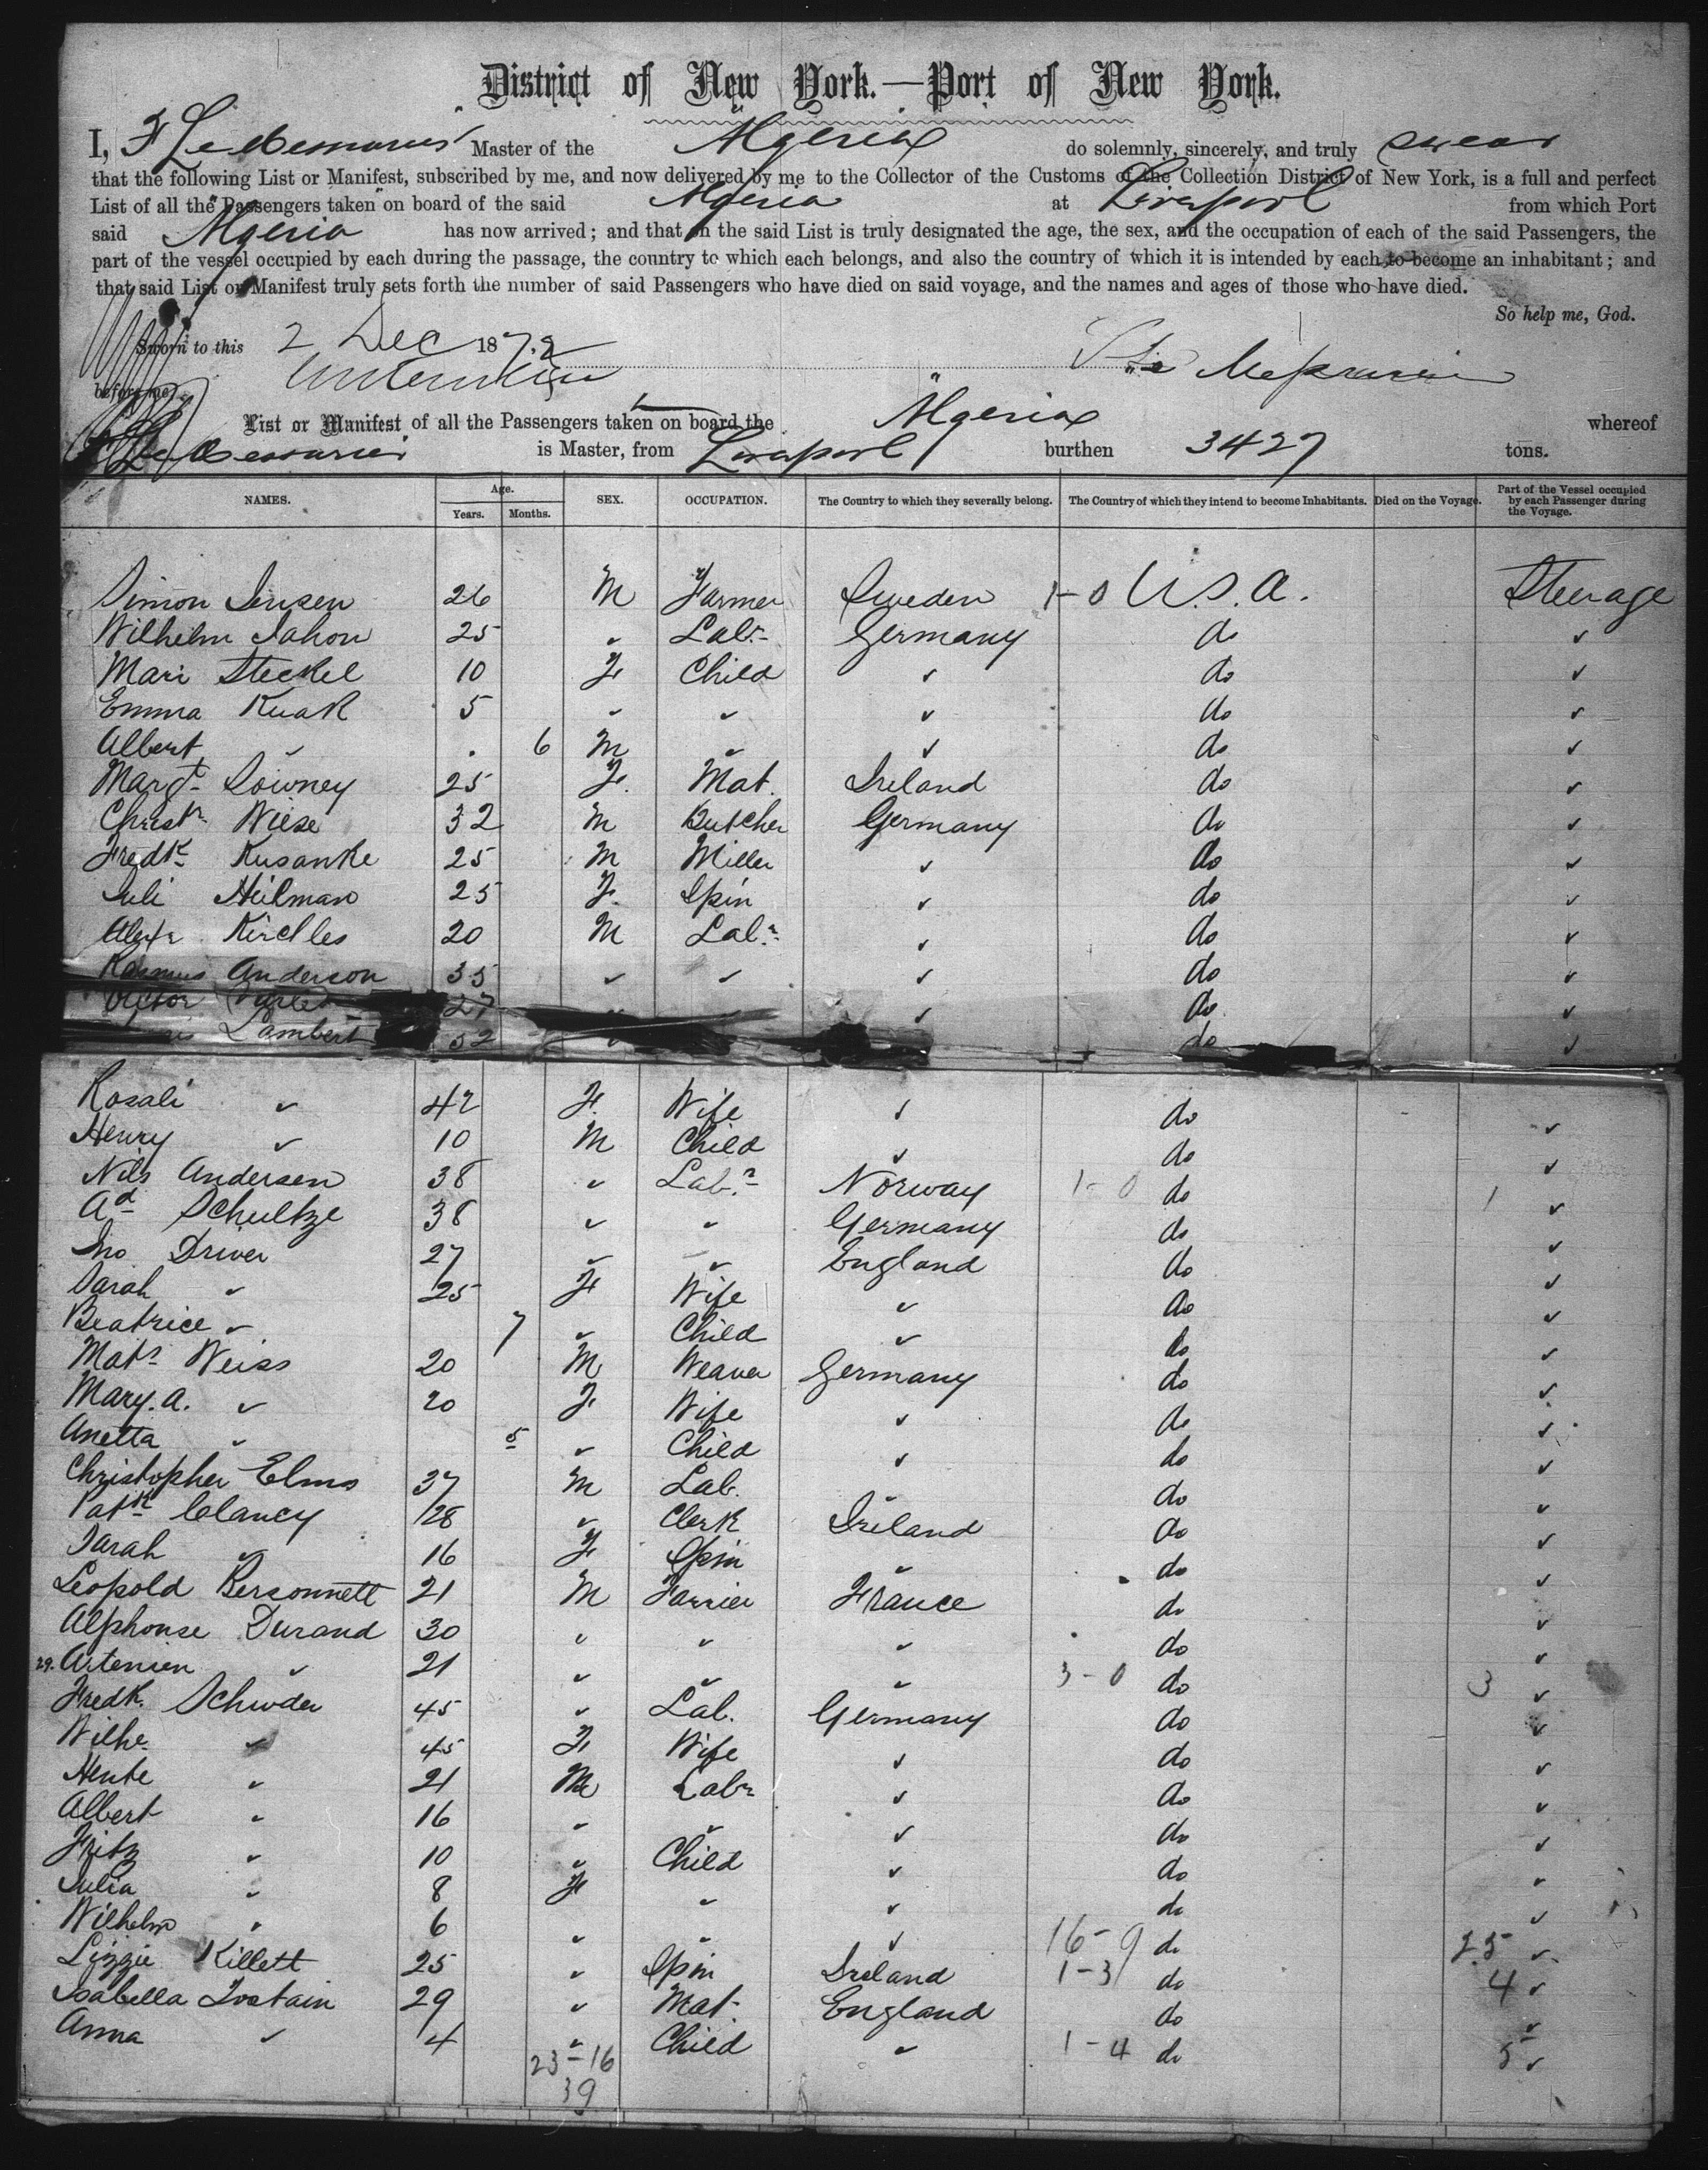 District of New York.—Port of New York.
I, Master of the Algeria do solemnly, sincerely, and truly swear
that the following List or Manifest, subscribed by me, and now delivered by me to the Collector of the Customs of the Collection District of New York, is a full and perfect
List of all the Passengers taken on board of the said Algeria at Liverpool from which Port
said Algeria has now arrived; and that in the said List is truly designated the age, the sex, and the occupation of each of the said Passengers, the
part of the vessel occupied by each during the passage, the country to which each belongs, and also the country of which it is intended by each to become an inhabitant; and
that said List or Manifest truly sets forth the number of said Passengers who have died on said voyage, and the names and ages of those who have died.
So help me, God.
Sworn to this 2 Dec 1872
before me
List or Manifest of all the Passengers taken on board the Algeria whereof
is Master, from Liverpool burthen 3427 tons.
NAMES. Age. Years. Months. SEX. OCCUPATION. The Country to which they severally belong. The Country of which they intend to become Inhabitants. Died on the Voyage. Part of the Vessel occupied by each Passenger during the Voyage.
Simon Jensen 26 M Farmer Sweden 1-0 U.S.A. Steerage
Wilhelm Jahon 25 " Labr Germany do "
Mari Steckel 10 F Child " do "
Emma Kuak 5 " " " do "
Albert " . 6 M " " do "
Margt Downey 25 F. Mat. Ireland do "
Christn Wiese 32 M Butcher Germany do "
Fredk Kusanke 25 M Miller " do "
Juli Heilman 25 F. Spin " do "
Alexr Kirchles 20 M Labr " do "
Rasmus Anderson 35 " " " do "
Victor 27 " do "
Lambert 52 " do "
Rosali " 42 F. Wife " do "
Henry " 10 M Child " do "
Nils Andersen 38 " Labr Norway 1-0 do 1 "
Ad Schultze 38 " " Germany do "
Jno Driver 27 " " England do "
Sarah " 25 F Wife " do "
Beatrice " 7 " Child " do "
Mats Weiss 20 M Weaver Germany do "
Mary. A. " 20 F Wife " do "
Anetta " 5 " Child " do "
Christopher Elms 37 M Lab. " do "
Patk Clancy 28 " Clerk Ireland do "
Sarah " 16 F Spin " do "
Leopold Bersonnett 21 M Farrier France do "
Alphonse Durand 30 " " " do "
29. Artemien " 21 " " " 3-0 do 3 "
Fredk. Schwder 45 " Lab. Germany do "
Wilhe " 45 F Wife " do "
Hente " 21 M Labr " do "
Albert " 16 " " " do "
Fritz " 10 " Child " do "
Julia " 8 F " " do "
Wilhelm " 6 " " " 16-9 do 25 "
Lizzie Killett 25 " Spin Ireland 1-3 do 4 "
Isabella Tostain 29 " Mat. England do "
Anna " 4 " Child " 1-4 do 5 "
23-16
39